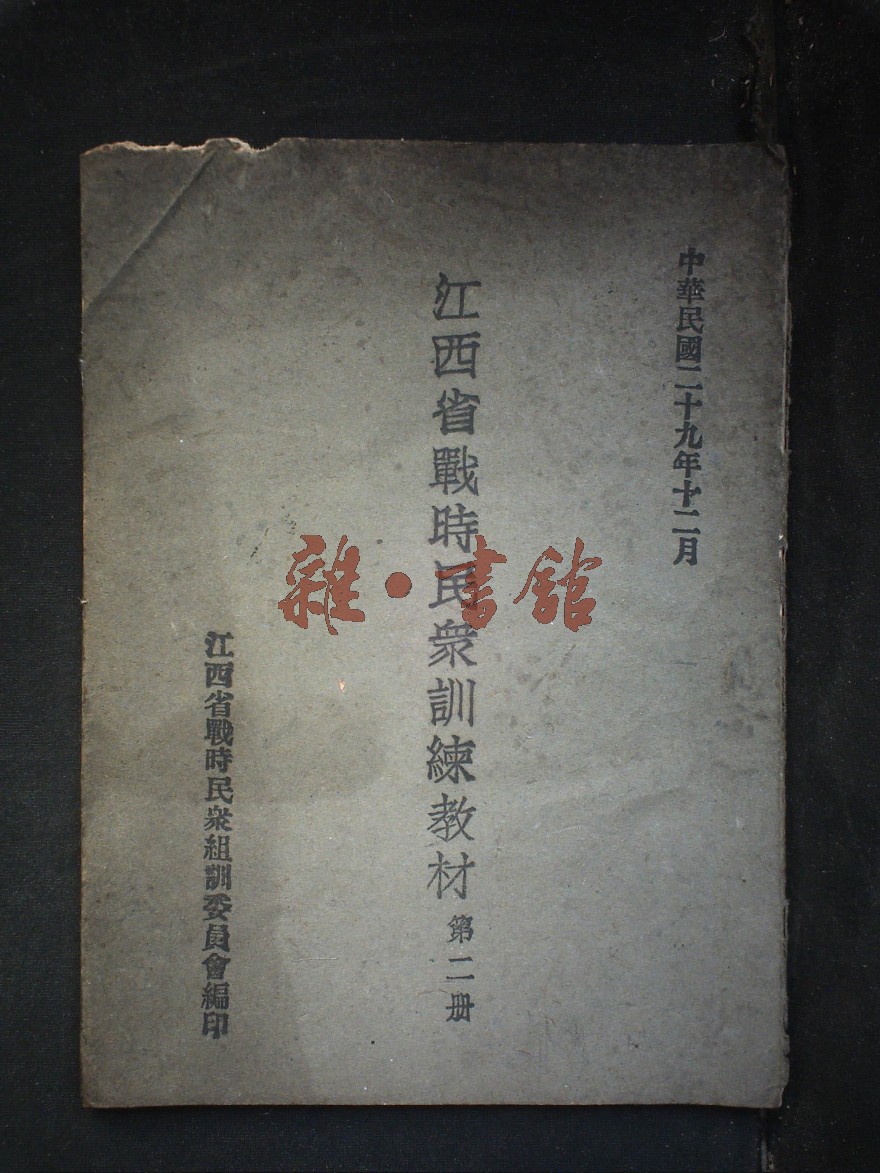 中華民國二十九年十二月
江西省戰時民衆訓練教材 第二册
江西省戰時民衆組訓委員會編印
雜·書館